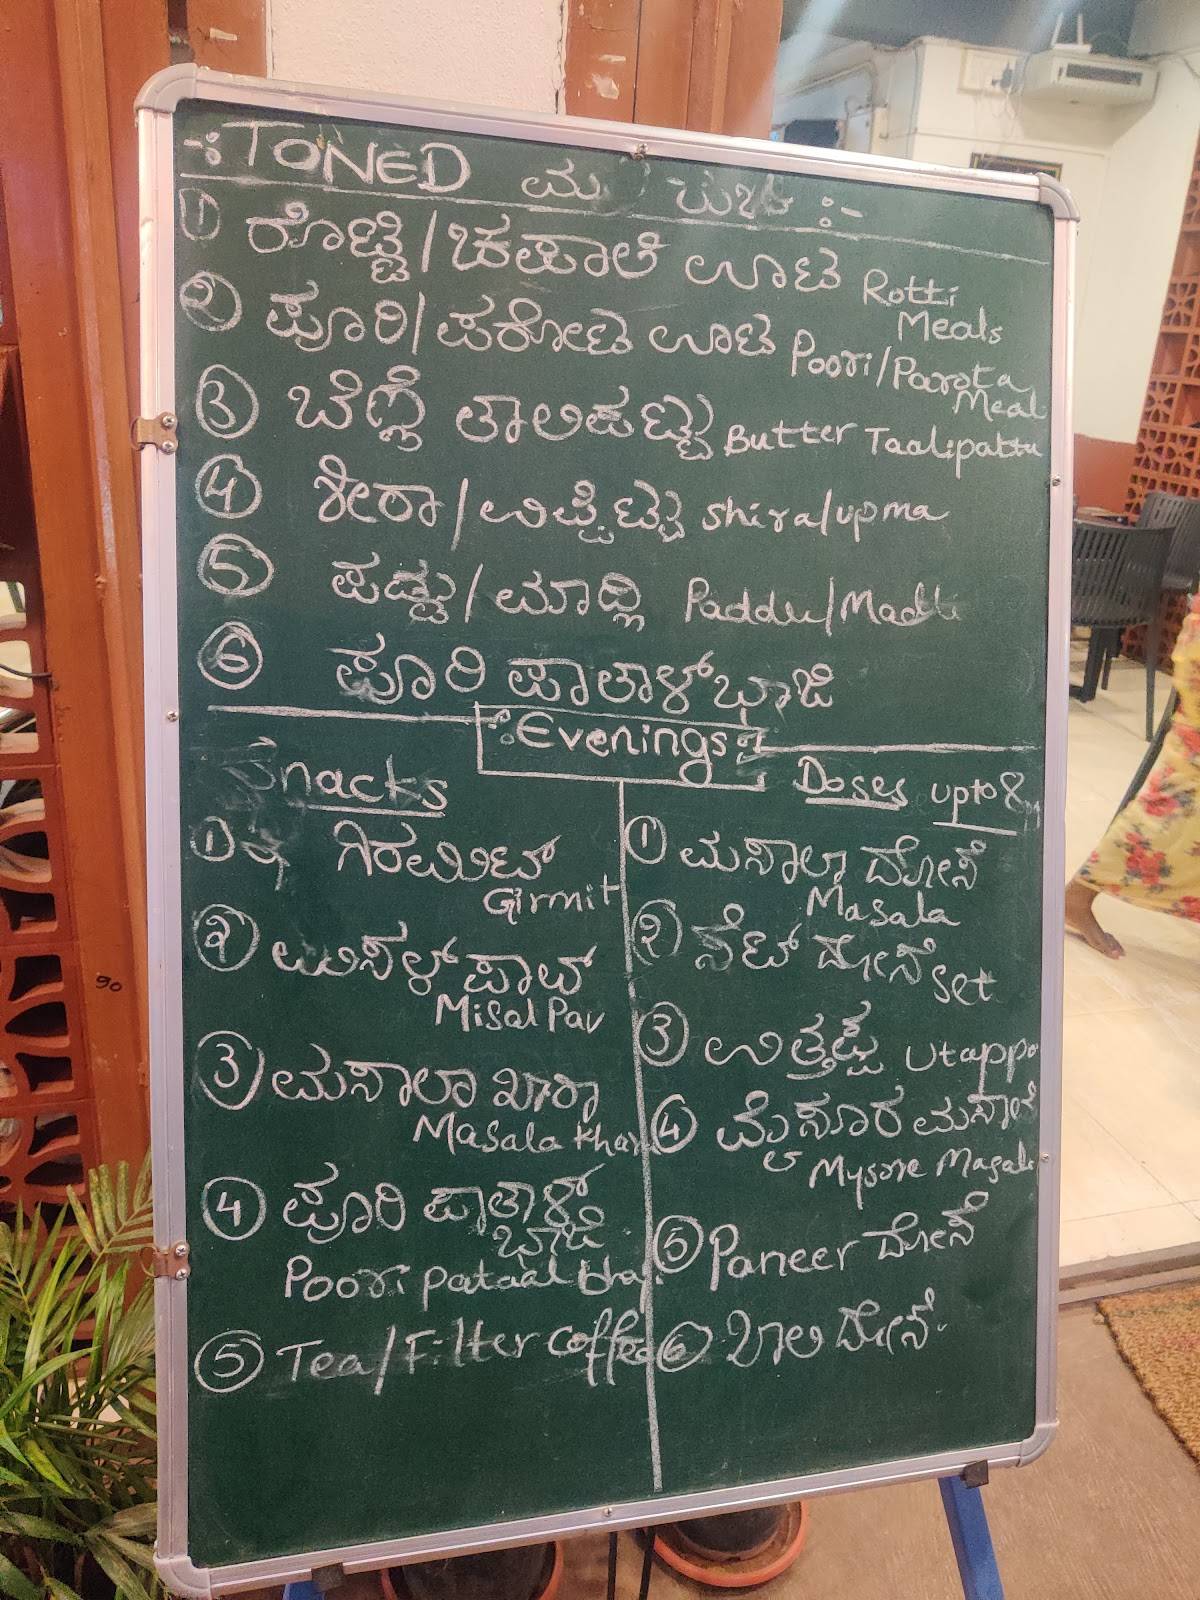 -: TONED
① ರೊಟ್ಟಿ/ಚಪಾತಿ ಊಟ Rotti
Meals
② ಪೂರಿ/ಪರೋಟ ಊಟ Poori/Parota
Meal
③ ಬೆಣ್ಣೆ ತಾಲಿಪಟ್ಟು Butter Taalipattu
④ ಶೀರಾ/ಉಪ್ಪಿಟ್ಟು Shira/upma
⑤ ಪಡ್ಡು/ಮಾದ್ಲಿ Paddu/Madli
⑥ ಪೂರಿ ಪಾತಾಳ್ ಭಾಜಿ
Evenings
Snacks
① ಗಿರಮಿಟ್
Girmit
② ಮಿಸಳ್ ಪಾವ್
Misal Pav
③ ಮಸಾಲಾ ಖಾರಾ
Masala khara
④ ಪೂರಿ ಪಾತಾಳ್
ಭಾಜಿ
Poori pataal bhaji
⑤ Tea/Filter Coffee
Doses upto 8
① ಮಸಾಲಾ ದೋಸೆ
Masala
② ಸೆಟ್ ದೋಸೆ set
③ ಉತ್ತಪ್ಪ Utappa
④ ಮೈಸೂರ ಮಸಾಲೆ
Mysore Masale
⑤ Paneer ದೋಸೆ
⑥ ಖಾಲಿ ದೋಸೆ
90